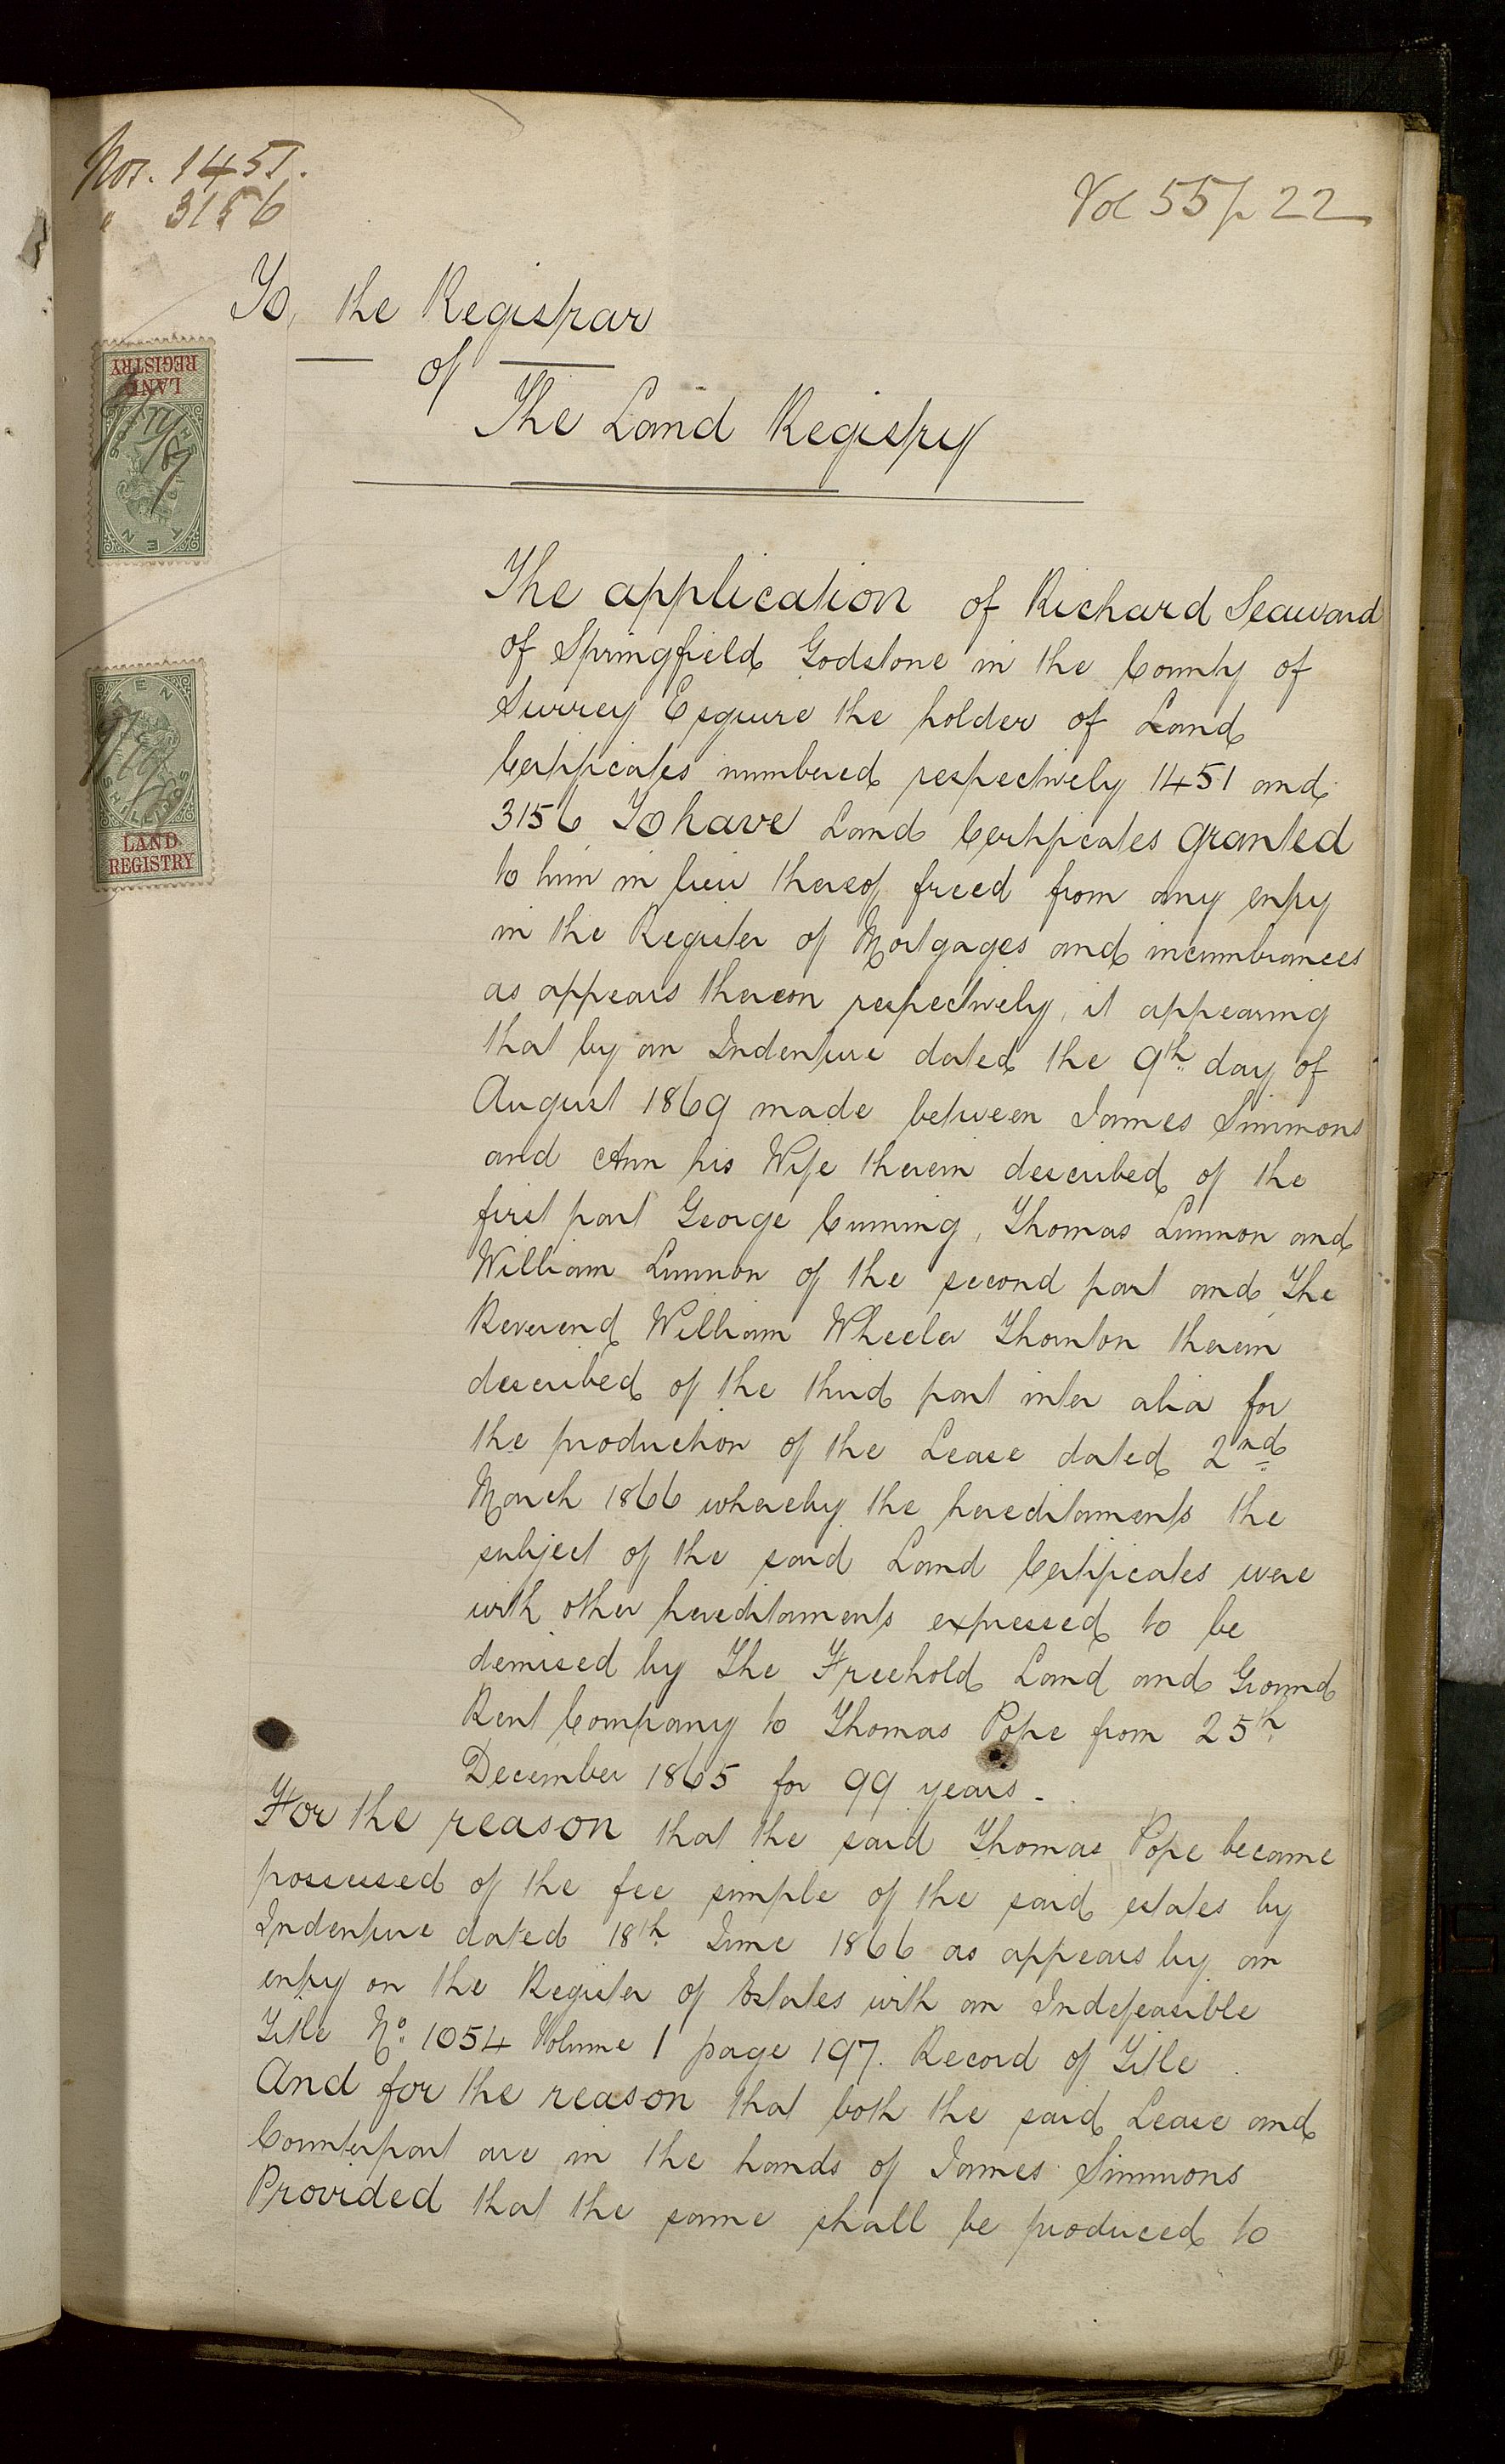 Nos. 1451.
" 3156
Vol 55 p 22
To, the Registrar
of
The Land Registry
LAND
REGISTRY
TEN
SHILLINGS
TEN
SHILLINGS
LAND
REGISTRY
The application of Richard Seaward
of Springfield Godstone in the County of
Surrey Esquire the holder of Land
Certificates numbered respectively 1451 and
3156 To have Land Certificates granted
to him in lieu thereof freed from any entry
in the Register of Mortgages and incumbrances
as appears thereon respectively, it appearing
that by an Indenture dated the 9th day of
August 1869 made between James Simmons
and Ann his Wife therein described of the
first part George Cuming, Thomas Linmon and
William Linmon of the second part and The
Reverend William Wheeler Thornton therein
described of the third part inter alia for
the production of the Lease dated 2nd
March 1866 whereby the hereditaments the
subject of the said Land Certificates were
with other hereditaments expressed to be
demised by The Freehold Land and Ground
Rent Company to Thomas Pope from 25th
December 1865 for 99 years.
For the reason that the said Thomas Pope became
possessed of the fee simple of the said estates by
Indenture dated 18th June 1866 as appears by an
entry on the Register of Estates with an Indefeasible
Title No. 1054 Volume 1 page 197. Record of Title.
And for the reason that both the said Lease and
Counterpart are in the hands of James Simmons
Provided that the same shall be produced to